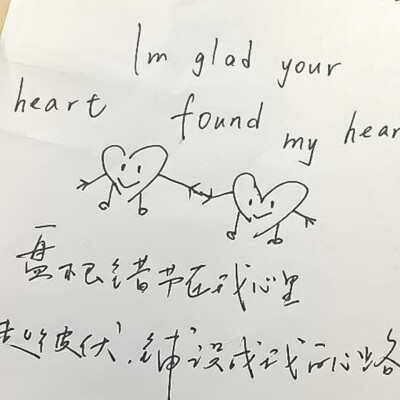 Im glad your
heart found my hear
盘根错节在我心里
起彼伏，铺设成我的心路